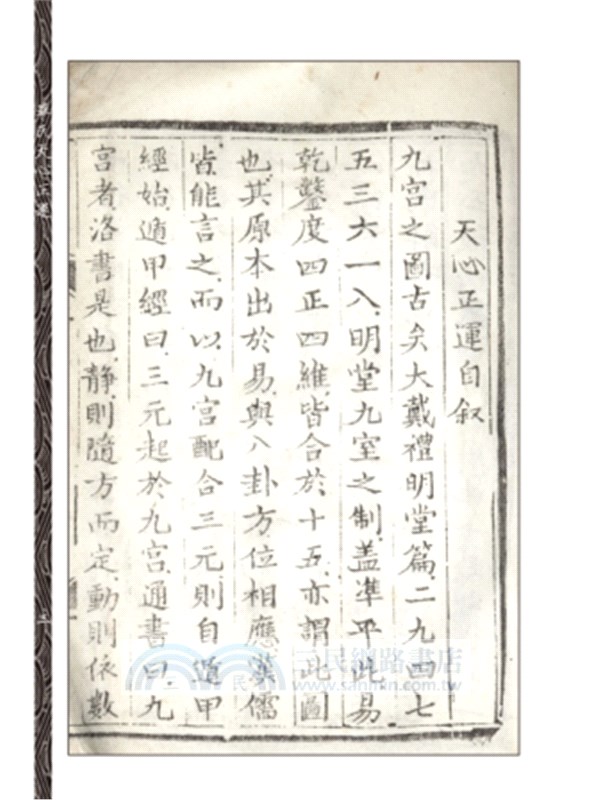 天心正運自叙
九宮之圖古矣大戴禮明堂篇、二九四七
五三六一八、明堂九室之制、盖準乎此易
乾鑿度四正四維、皆合於十五、亦謂此圖
也、其原本出於易、與八卦方位相應、漢儒
皆能言之、而以九宮配合三元、則自遁甲
經始、遁甲經曰、三元起於九宮、通書曰、九
宮者、洛書是也、静則隨方而定、動則依數
華氏天心正運
三民網路書店
www.sanmin.com.tw